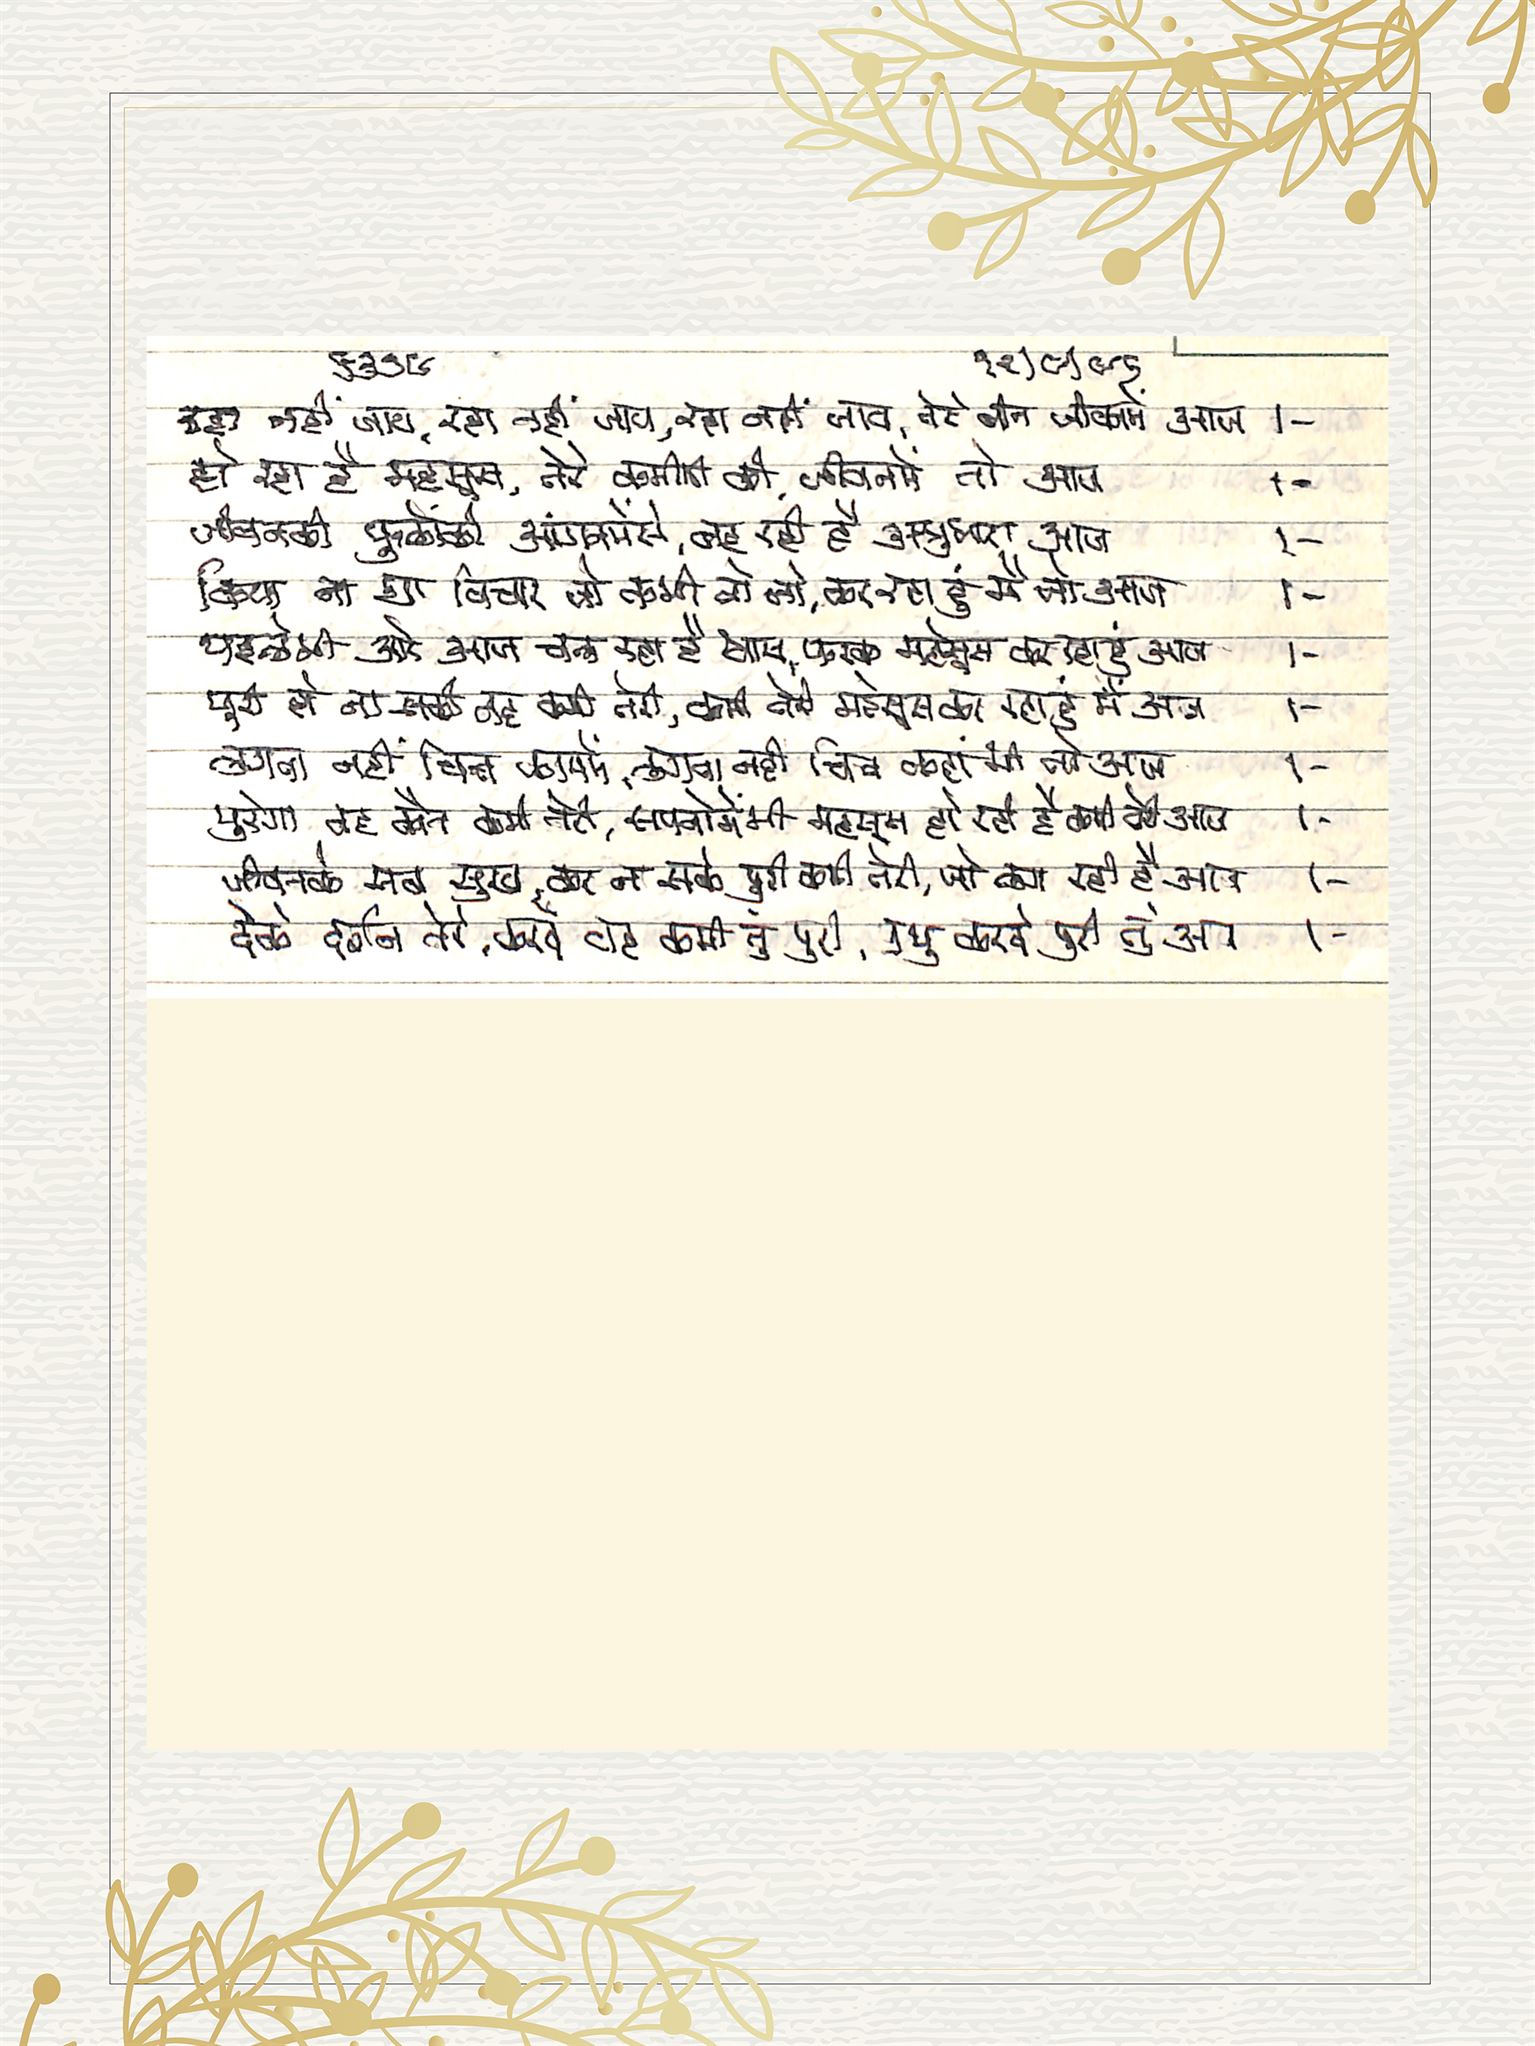 ६३३८ १२/८/८६
रहा नहीं जाय, रहा नहीं जाय, रहा नहीं जाय, तेरे बीन जीवनमें आज ।-
हो रहा है महसूस, तेरे कमीकी को, जीवनमें तो आज ।-
जीवनकी आंगनमेंसे, बह रही है अश्रुधारा आज ।-
किया ना था विचार जो कभी वो तो, कर रहा हुं मैं तो आज ।-
पहलेभी और आज चल रहा है श्वास, फरक महेसूस कर रहा हुं आज ।-
पूरी हो ना सकी वह कमी तेरी, कमी तेरी महेसूस कर रहा हुं मैं आज ।-
लगता नहीं चित्त काममें, लगता नही चित्त कहां भी तो आज ।-
पुरेगा वह कौन कमी तेरी, सपनोमेंभी महसूस हो रही है कमी तेरी आज ।-
जीवनके सब सुख, कर ना सके पुरी कमी तेरी, जो लग रही है आज ।-
देके दर्शन तेरे, करदे वह कमी तुं पुरी, प्रभु करदे पुरी तुं आज ।-